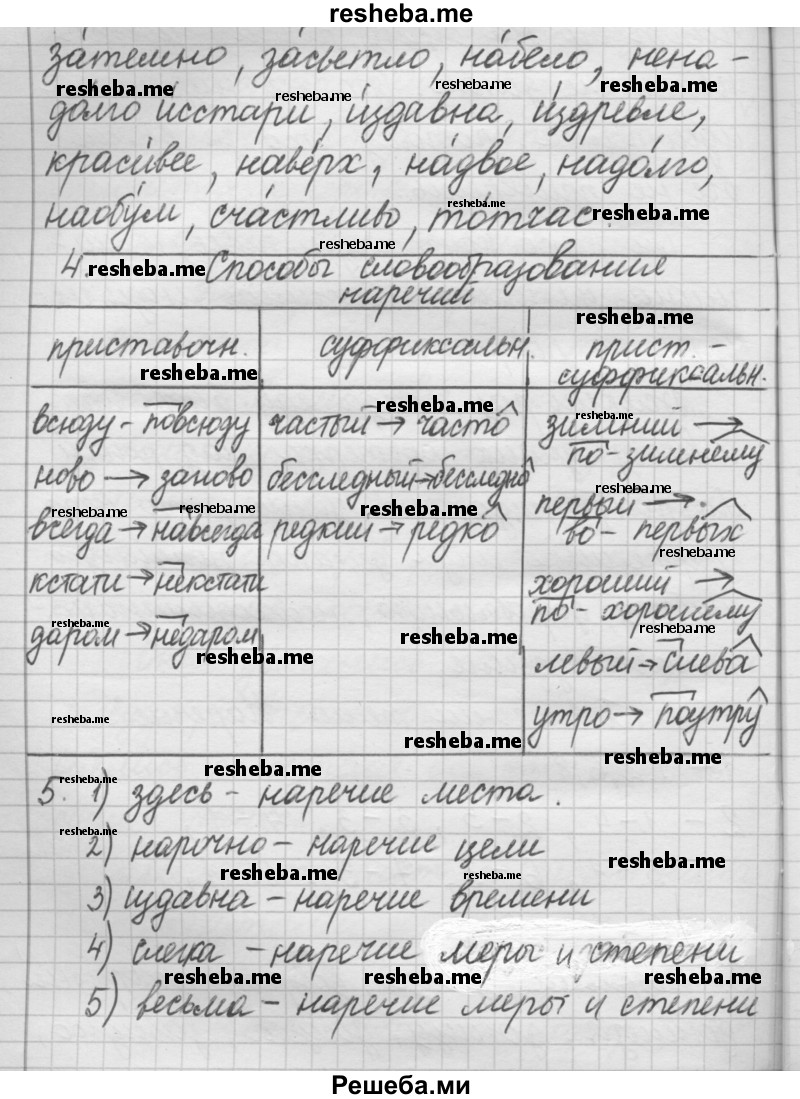 resheba.me
за́темно, за́светло, на́бело, нена-
до́лго исстари, и́здавна, и́здревле,
краси́вее, наве́рх, на́двое, надо́лго,
наобу́м, сча́стливо, то́тчас.
4. Способы словообразования
наречий
приставочн. суффиксальн. прист.-
суффиксальн.
всюду - повсюду частый → часто зимний →
по-зимнему
ново → заново бесследный → бесследно первый →
во-первых
всегда → навсегда редкий → редко
кстати → некстати хороший →
по-хорошему
даром → недаром левый → слева
утро → поутру
5. 1) здесь - наречие места.
2) нарочно - наречие цели
3) издавна - наречие времени
4) слегка - наречие меры и степени
5) весьма - наречие меры и степени
Решеба.ми